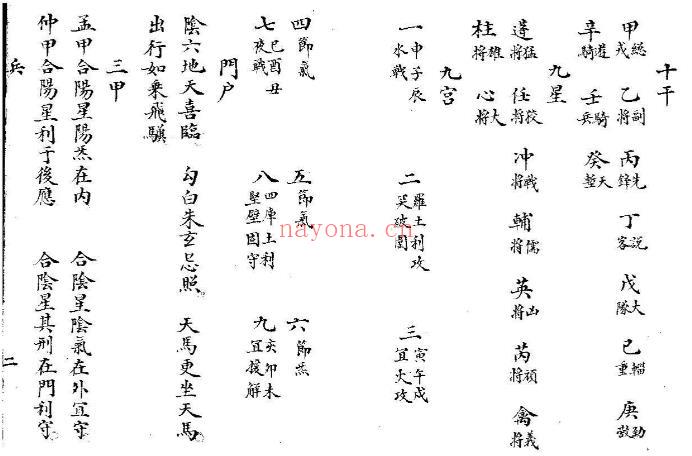 十干
甲總戎 乙副將 丙先鋒 丁説客 戊大隊 已輜重 庚勁敵
辛遊騎 壬騎兵 癸天
九星
蓬猛將 任將 冲戰將 輔儒將 英將 芮頑將 禽義將
柱雄將 心大將
九宫
一申子辰水戰 二羅土利攻破圍 三寅午戌宜火攻
四節氣 五節氣 六節炁
七已酉丑夜戰 八四庫土利堅壁固守 九亥卯未宜援解
門户
陰六地天喜臨 勾白朱玄忌照 天馬更坐天馬
出行如乘飛騏
三甲
孟甲合陽星陽炁在内 合陰星陰氣在外宜守
仲甲合陽星利于後應 合陰星其刑在門利守
兵 二
nayona.cn